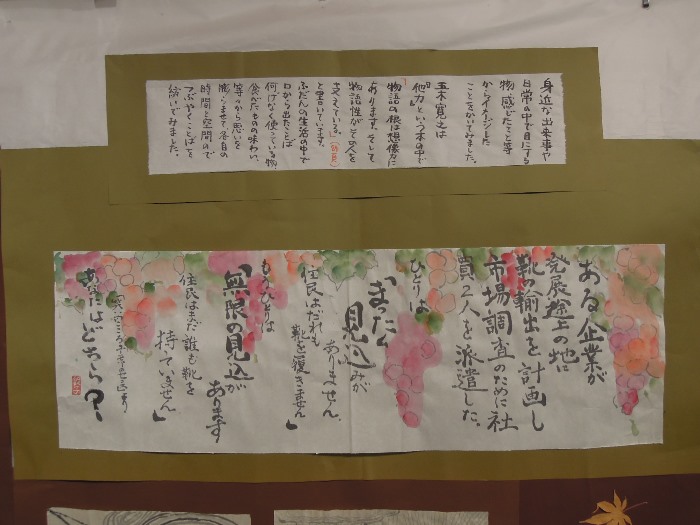 身近な出来事や
日常の中で目にする
物、感じたこと等
からイメージした
ことをかいてみました。
五木寛之は
「他力」という本の中で
物語の根は想像力に
あります。そして
物語性がその人を
支えている。
と書いています。
ふだんの生活の中で
わから出たことば
何げなく使っている物、
食べたものの味わい、
等々から思いを
膨らませて、各自の
時間と空間の中で
つぶやくことばを
紡いでみました。
ある企業が
発展途上の地に
靴の輸出を計画し
市場調査のために社
員2人を派遣した。
ひとりは
「まったく
見込みが
ありません。
住民はだれも
靴を履きません」
もうひとりは
「無限の見込が
あります
住民はまだ誰も靴を
持っていません」
あなたはどちら?